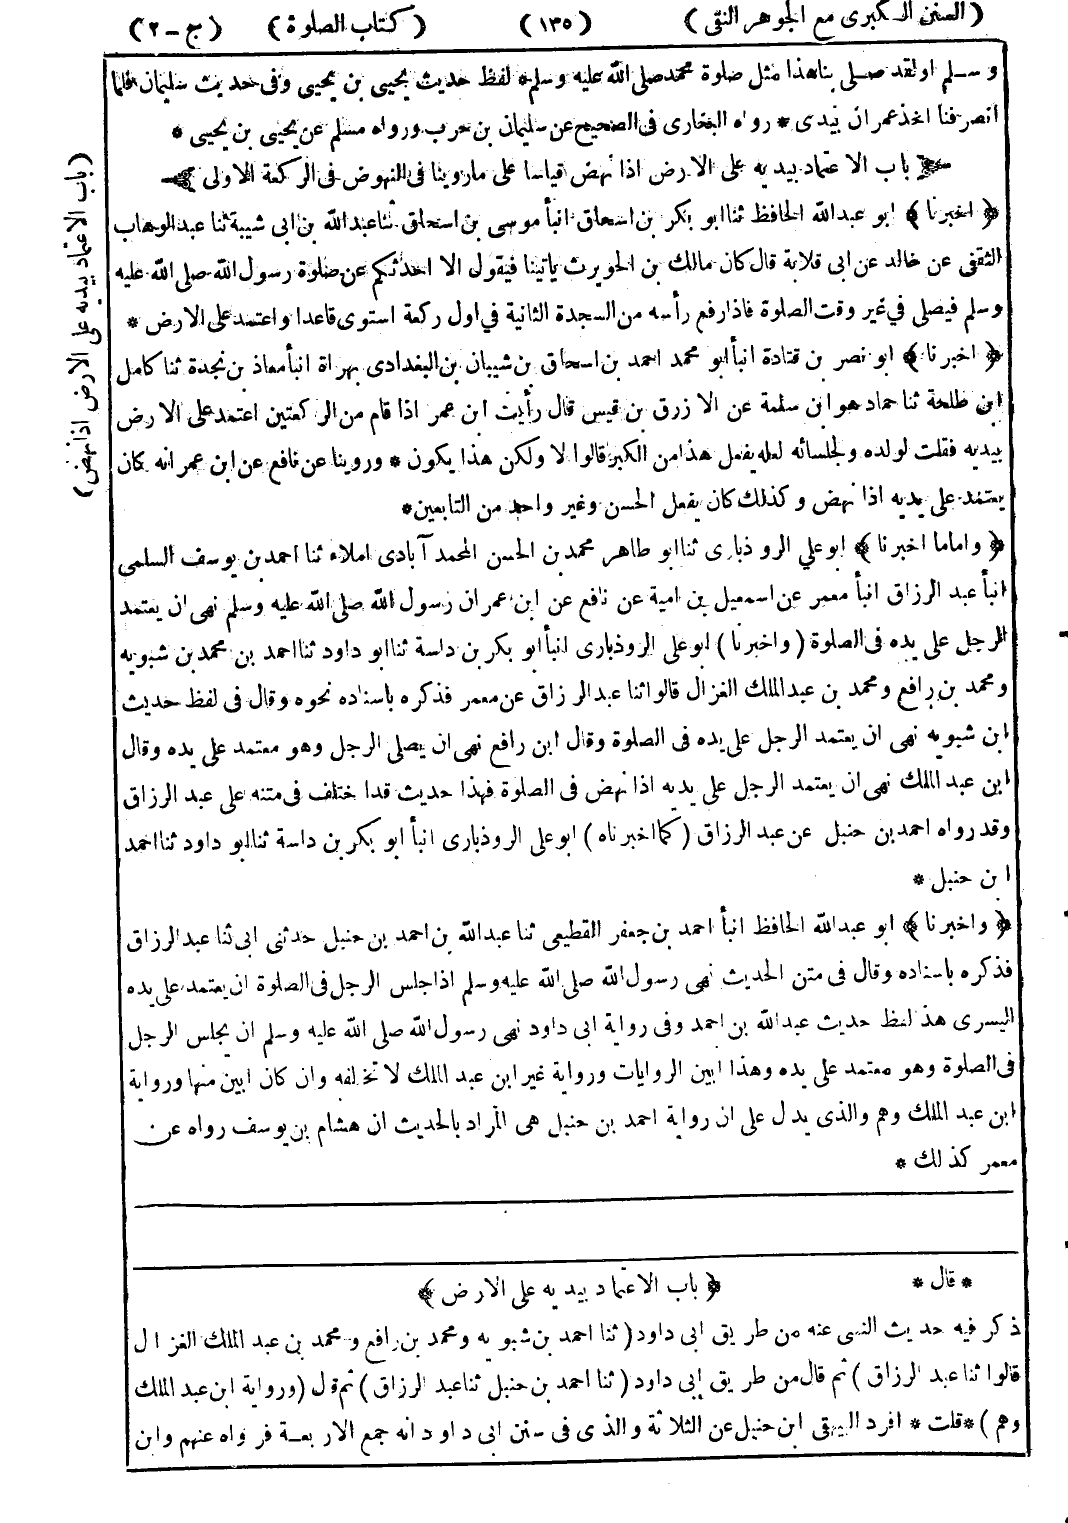 (السنن الكبرى مع الجوهر النقى) (١٣٥) (كتاب الصلوة) (ج-٢)
وسلم او لقد صلى بنا هذا مثل صلوة محمد صلى الله عليه وسلم* لفظ حديث يحيى بن يحيى وفى حديث سليمان فلما
انصرفنا اخذ عمران بيدى * رواه البخارى فى الصحيح عن سليمان بن حرب ورواه مسلم عن يحيى بن يحيى *
باب الاعتماد بيديه على الارض اذا نهض قياسا على ما روينا فى النهوض فى الركعة الاولى
﴿ اخبرنا ﴾ ابو عبدالله الحافظ ثنا ابو بكر بن اسحاق انبأ موسى بن اسحاق ثنا عبدالله بن ابى شيبة ثنا عبدالوهاب
الثقفى عن خالد عن ابى قلابة قال كان مالك بن الحويرث ياتينا فيقول الا احدثكم عن صلوة رسول الله صلى الله عليه
وسلم فيصلى في غير وقت الصلوة فاذا رفع رأسه من السجدة الثانية في اول ركعة استوى قاعدا واعتمد على الارض *
﴿ اخبرنا ﴾ ابو نصر بن قتادة انبأ ابو محمد احمد بن اسحاق بن شيبان بن البغدادى بهراة انبأ معاذ بن نجدة ثنا كامل
ابن طلحة ثنا حماد هو ابن سلمة عن الازرق بن قيس قال رأيت ابن عمر اذا قام من الركعتين اعتمد على الارض
بيديه فقلت لولده ولجلسائه لعله يفعل هذا من الكبر قالوا لا ولكن هذا يكون * وروينا عن نافع عن ابن عمر انه كان
يعتمد على يديه اذا نهض وكذلك كان يفعل الحسن وغير واحد من التابعين*
﴿ واما ما اخبرنا ﴾ ابو علي الروذبارى ثنا ابو طاهر محمد بن الحسن المحمد آبادى املاء ثنا احمد بن يوسف السلمى
انبأ عبد الرزاق انبأ معمر عن اسمعيل بن امية عن نافع عن ابن عمر ان رسول الله صلى الله عليه وسلم نهى ان يعتمد
الرجل على يده فى الصلوة ( واخبرنا ) ابو على الروذبارى انبأ ابو بكر بن داسة ثنا ابو داود ثنا احمد بن محمد بن شبويه
ومحمد بن رافع ومحمد بن عبد الملك الغزال قالوا ثنا عبد الرزاق عن معمر فذكره باسناده نحوه وقال فى لفظ حديث
ابن شبويه نهى ان يعتمد الرجل على يده فى الصلوة وقال ابن رافع نهى ان يصلى الرجل وهو معتمد على يده وقال
ابن عبد الملك نهى ان يعتمد الرجل على يديه اذا نهض فى الصلوة فهذا حديث قد اختلف فى متنه على عبد الرزاق
وقد رواه احمد بن حنبل عن عبد الرزاق ( كما اخبرناه ) ابو على الروذبارى انبأ ابو بكر بن داسة ثنا ابو داود ثنا احمد
ابن حنبل *
﴿ واخبرنا ﴾ ابو عبدالله الحافظ انبأ احمد بن جعفر القطيعى ثنا عبدالله بن احمد بن حنبل حدثنى ابى ثنا عبد الرزاق
فذكره باسناده وقال فى متن الحديث نهى رسول الله صلى الله عليه وسلم اذا جلس الرجل فى الصلوة ان يعتمد على يده
اليسرى هذ لفظ حديث عبدالله بن احمد وفى رواية ابى داود نهى رسول الله صلى الله عليه وسلم ان يجلس الرجل
فى الصلوة وهو معتمد على يده وهذا ابين الروايات ورواية غير ابن عبد الملك لا تخالفه وان كان ابين منها ورواية
ابن عبد الملك وهم والذى يدل على ان رواية احمد بن حنبل هى المراد بالحديث ان هشام بن يوسف رواه عن
معمر كذلك *
* قال * ﴿ باب الاعتماد بيديه على الارض ﴾
ذكر فيه حديث النهى عنه من طريق ابى داود ( ثنا احمد بن شبويه ومحمد بن رافع ومحمد بن عبد الملك الغزال
قالوا ثنا عبد الرزاق ) ثم قال من طريق ابى داود ( ثنا احمد بن حنبل ثنا عبد الرزاق ) ثم قال ( ورواية ابن عبد الملك
وهم ) * قلت * افرد البيهقى ابن حنبل عن الثلاثة والذى فى سنن ابى داود انه جمع الاربعة فرواه عنهم وابن
(باب الاعتماد بيديه على الارض اذا نهض)